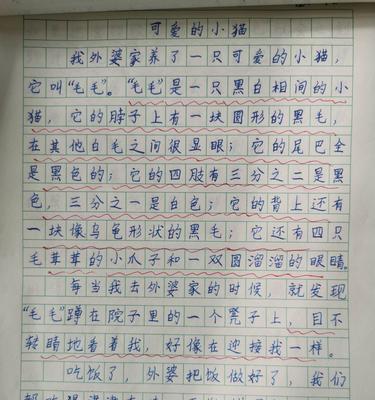 可爱的小猫
我外婆家养了一只可爱的小猫，
它叫“毛毛”。“毛毛”是一只黑白相间的小
猫，它的脖子上有一块圆形的黑毛，
在其他白毛之间很显眼；它的尾巴全
是黑色的；它的四肢有三分之二是黑
色，三分之一是白色；它的背上还有
一块像乌龟形状的黑毛；它还有四只
毛茸茸的小爪子和一双圆溜溜的眼睛。
每当我去外婆家的时候，就发现
“毛毛”蹲在院子里的一个凳子上，目不
转睛地看着我，好像在迎接我一样。
吃饭了，外婆把饭做好了，我们